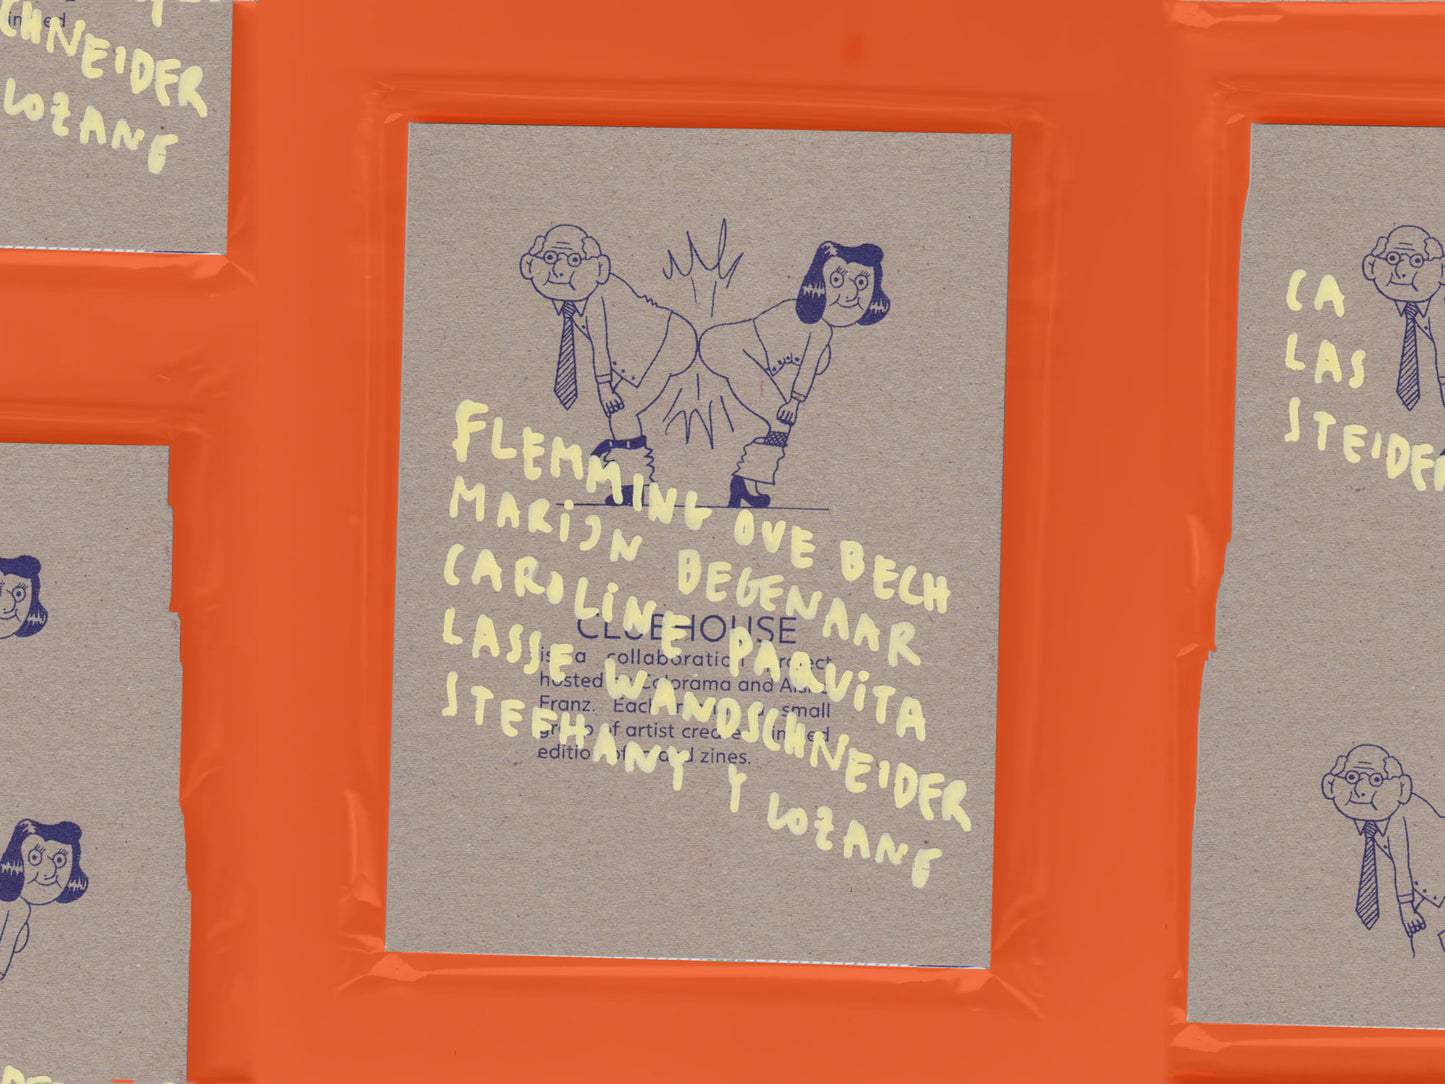 CHNEIDER
LOZANE
FLEMMING OVE BECH
MARIJN DEGENAAR
CAROLINE PARVITA
LASSE WANDSCHNEIDER
STEFHANY Y LOZANE
CLUBHOUSE
is a collaboration project
hosted by Colorama and Aisha
Franz. Each small
group of artist create limited
edition and zines.
CA
LAS
STEIDER